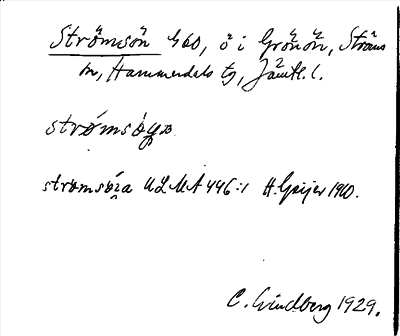 Strömsön 460, ö i Grönön, Ströms
sn, Hammerdals tg, Jämtl. l.
strǿmsø̀yn
strømsø̀i̯a ULMA 446:1 H. Geijer 1960.
C. Lindberg 1929.